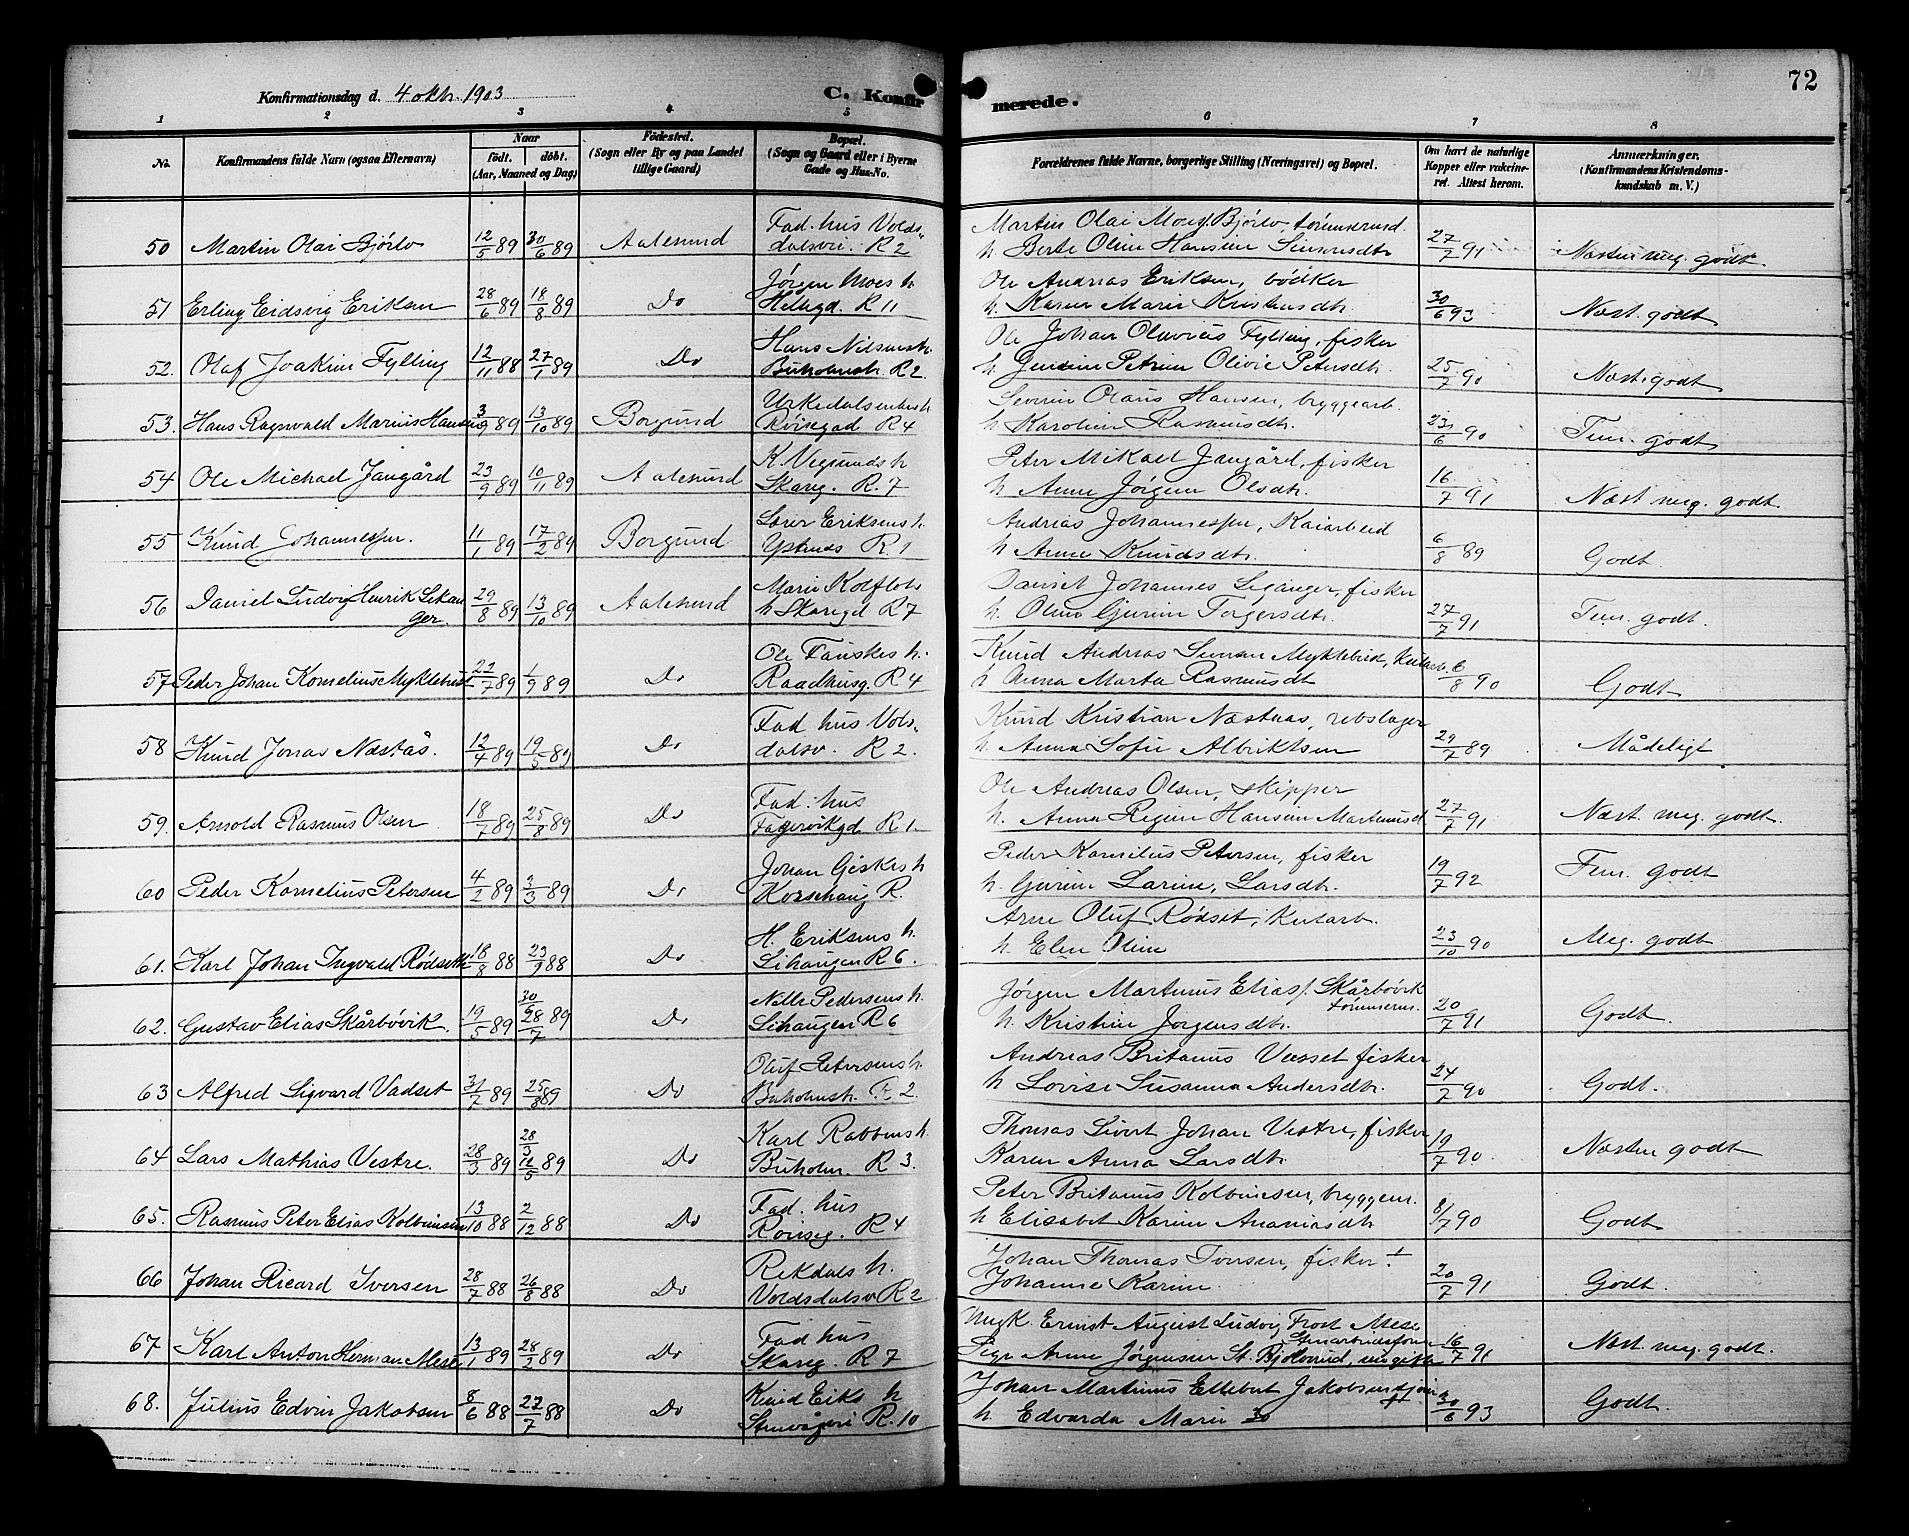 72
Konfirmationsdag d. 4 okt. 1903
C. Konfirmerede.
1 2 3 4 5 6 7 8
No. Konfirmandens fulde Navn (ogsaa Efternavn) Naar født. døbt. (Aar, Maaned og Dag) Fødested. (Sogn eller By og paa Landet tillige Gaard) Bopæl. (Sogn og Gaard eller i Byerne Gade og Hus-No. Forældrenes fulde Navne, borgerlige Stilling (Næringsvei) og Bopæl. Om havt de naturlige Kopper eller vakcineret. Attest herom. Anmærkninger. (Konfirmandens Kristendomskundskab m. V.)
Fad. hus Volds- Martin Olai Bjørlo, tømmermd.
50 Martin Olai Bjørlo 12/5 89 30/6 89 Aalesund dalsvei. R 2 h. Berte Oline Hansen 27/7 91 Næsten meg. godt.
Jørgen Moes h Ole Andreas Eriksen, bødker
51 Erling Eidsvig Eriksen 28/6 89 18/8 89 Do R 11 h. Karen Marie Kristensdtr. 30/6 93 Næst. godt
Hans Nilsens h. Ole Johan Olavius Fylling, fisker
52. Olaf Joakim Fylling 12/11 88 27/1 89 Do Buholmstr. R 2. h. Petrine Olivie Petersdtr. 25/7 90 Næst. godt
Severin Olaus Hansen, bryggearb.
53. Hans Ragnvald Marius Hansen 3/9 89 13/10 89 Borgund R 4 h Karoline Rasmusdtr. 23/6 90 Tem. godt
K. Vegsunds h Peter Mikael Jangård, fisker
54 Ole Michael Jangård 23/9 89 10/11 89 Aalesund Skarg. R. 7 h Anne Jørgine Olsdtr. 16/7 91 Næst meg. godt.
Lærer Eriksens h. Andrias Johannessen, Kaiarbeid
55 Knud Johannessen. 11/1 89 17/2 89 Borgund R 1 h Anne Knudsdtr. 6/8 89 Godt.
Daniel Johannes Legånger, fisker
56 Daniel Ludvig Henrik Lekanger. 29/8 89 13/10 89 Aalesund h Skaregd R 7 h. Oline Gjurine Torgersdtr. 27/7 91 Tem. godt.
Ole Fauskes h. Knud Andreas
57 Peder Johan Kornelius Myklebust 27/7 89 1/9 89 Do Raadhusg. R 4 h Anna Marta Rasmusdtr 6/8 90 Godt
Fad hus Vols- Knud Kristian Næstaas, rebslager
58 Knud Jonas Næstås. 12/4 89 19/5 89 Do dalsv. R 2. h. Anna Sofie Albriktsen 29/7 89 Mådeligt
Fad. hus Ole Andreas Olsen, skipper
59. Arnold Rasmus Olsen 18/7 89 25/8 89 Do Fagervikgd. R 1. h. Anna Regine Hansen 27/7 91 Næst. meg. godt.
Johan Giskes h Peder Kornelius Petersen, fisker
60 Peder Kornelius Petersen 4/2 89 3/3 89 Do Korsehaug R. h. Gjurine Larine, Larsdtr. 19/7 92 Tem. godt
H. Eriksens h Arne Oluf Rødset, Kularb.
61. Karl Johan Ingvald Rødseth 18/8 88 23/9 88 Do Lihaugen R 6. h. Elen Oline 23/10 90 Meg. godt
Nills Pedersens h. Jørgen Martinus Elias. Skårbøvik tømmerm.
62. Gustav Elias Skårbøvik. 19/5 89 30/9 28/7 89 Do Lihaugen R 6 h. Kristine Jørgensdtr. 20/7 91 Godt.
Oluf Petersens h Andreas Britanus Vasset fisker
63 Alfred Sigvard Vadset 31/7 89 25/8 89 Do Buholmstr. R 2. h Lovise Susanna Andersdtr. 24/7 90 Godt.
Karl Rabbens h. Thomas Sivert Johan Vestre, fisker
64 Lars Mathias Vestre. 28/3 89 28/3 12/5 89 Do Buholm. R 3. Karen Anna Larsdtr. 19/7 90 Næsten godt
Fad. hus Peter Britanus Kolbeinsen, bryggem.
65. Rasmus Peter Elias Kolbeinsen 13/10 88 2/12 88 Do R 4 h Elisabet Karine Ananiasdtr 8/7 90 Godt
Rekdals h. Johan Thomas Iversen, fisker +
66 Johan Ricard Iversen 28/7 88 26/8 88 Do Voldsdalsv R 2 Johanne Karine 20/7 91 Godt.
Fad hus Ungk. Ernst August Ludvig Frost Mese
67 Karl Anton Herman Mese 13/1 89 28/2 89 Do Skareg. R 7 Pige Anne Jørgensen 16/7 91 Næst. meg. godt.
Knud Eiks h Johan Martinus Ellebut Jakobsen
68. Julius Edvin Jakobsen 8/6 88 22/7 88 Do R. 10 h. Edvarda Marie 30/6 93 Godt.